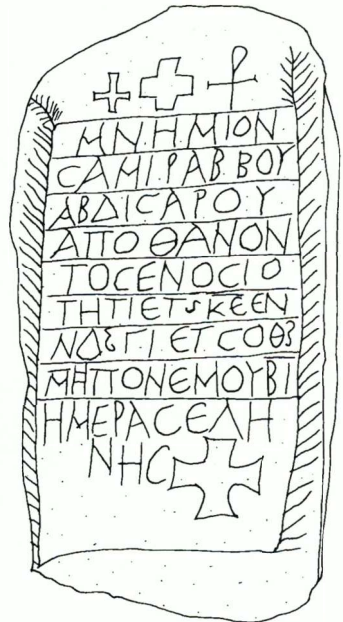 ΜΝΗΜΙΟΝ
CΑΜΙΡΑΒΒΟΥ
ΑΒΔΙCΑΡΟΥ
ΑΠΟΘΑΝΟΝ
ΤΟCΕΝΟCΙΟ
ΤΗΤΙΕΤSΚΕΕΝ
ΝΔSΓΙΕΤCΟΘS
ΜΗΠΟΝΕΜΟΥΒΙ
ΗΜΕΡΑCΕΛΗ
ΝΗC